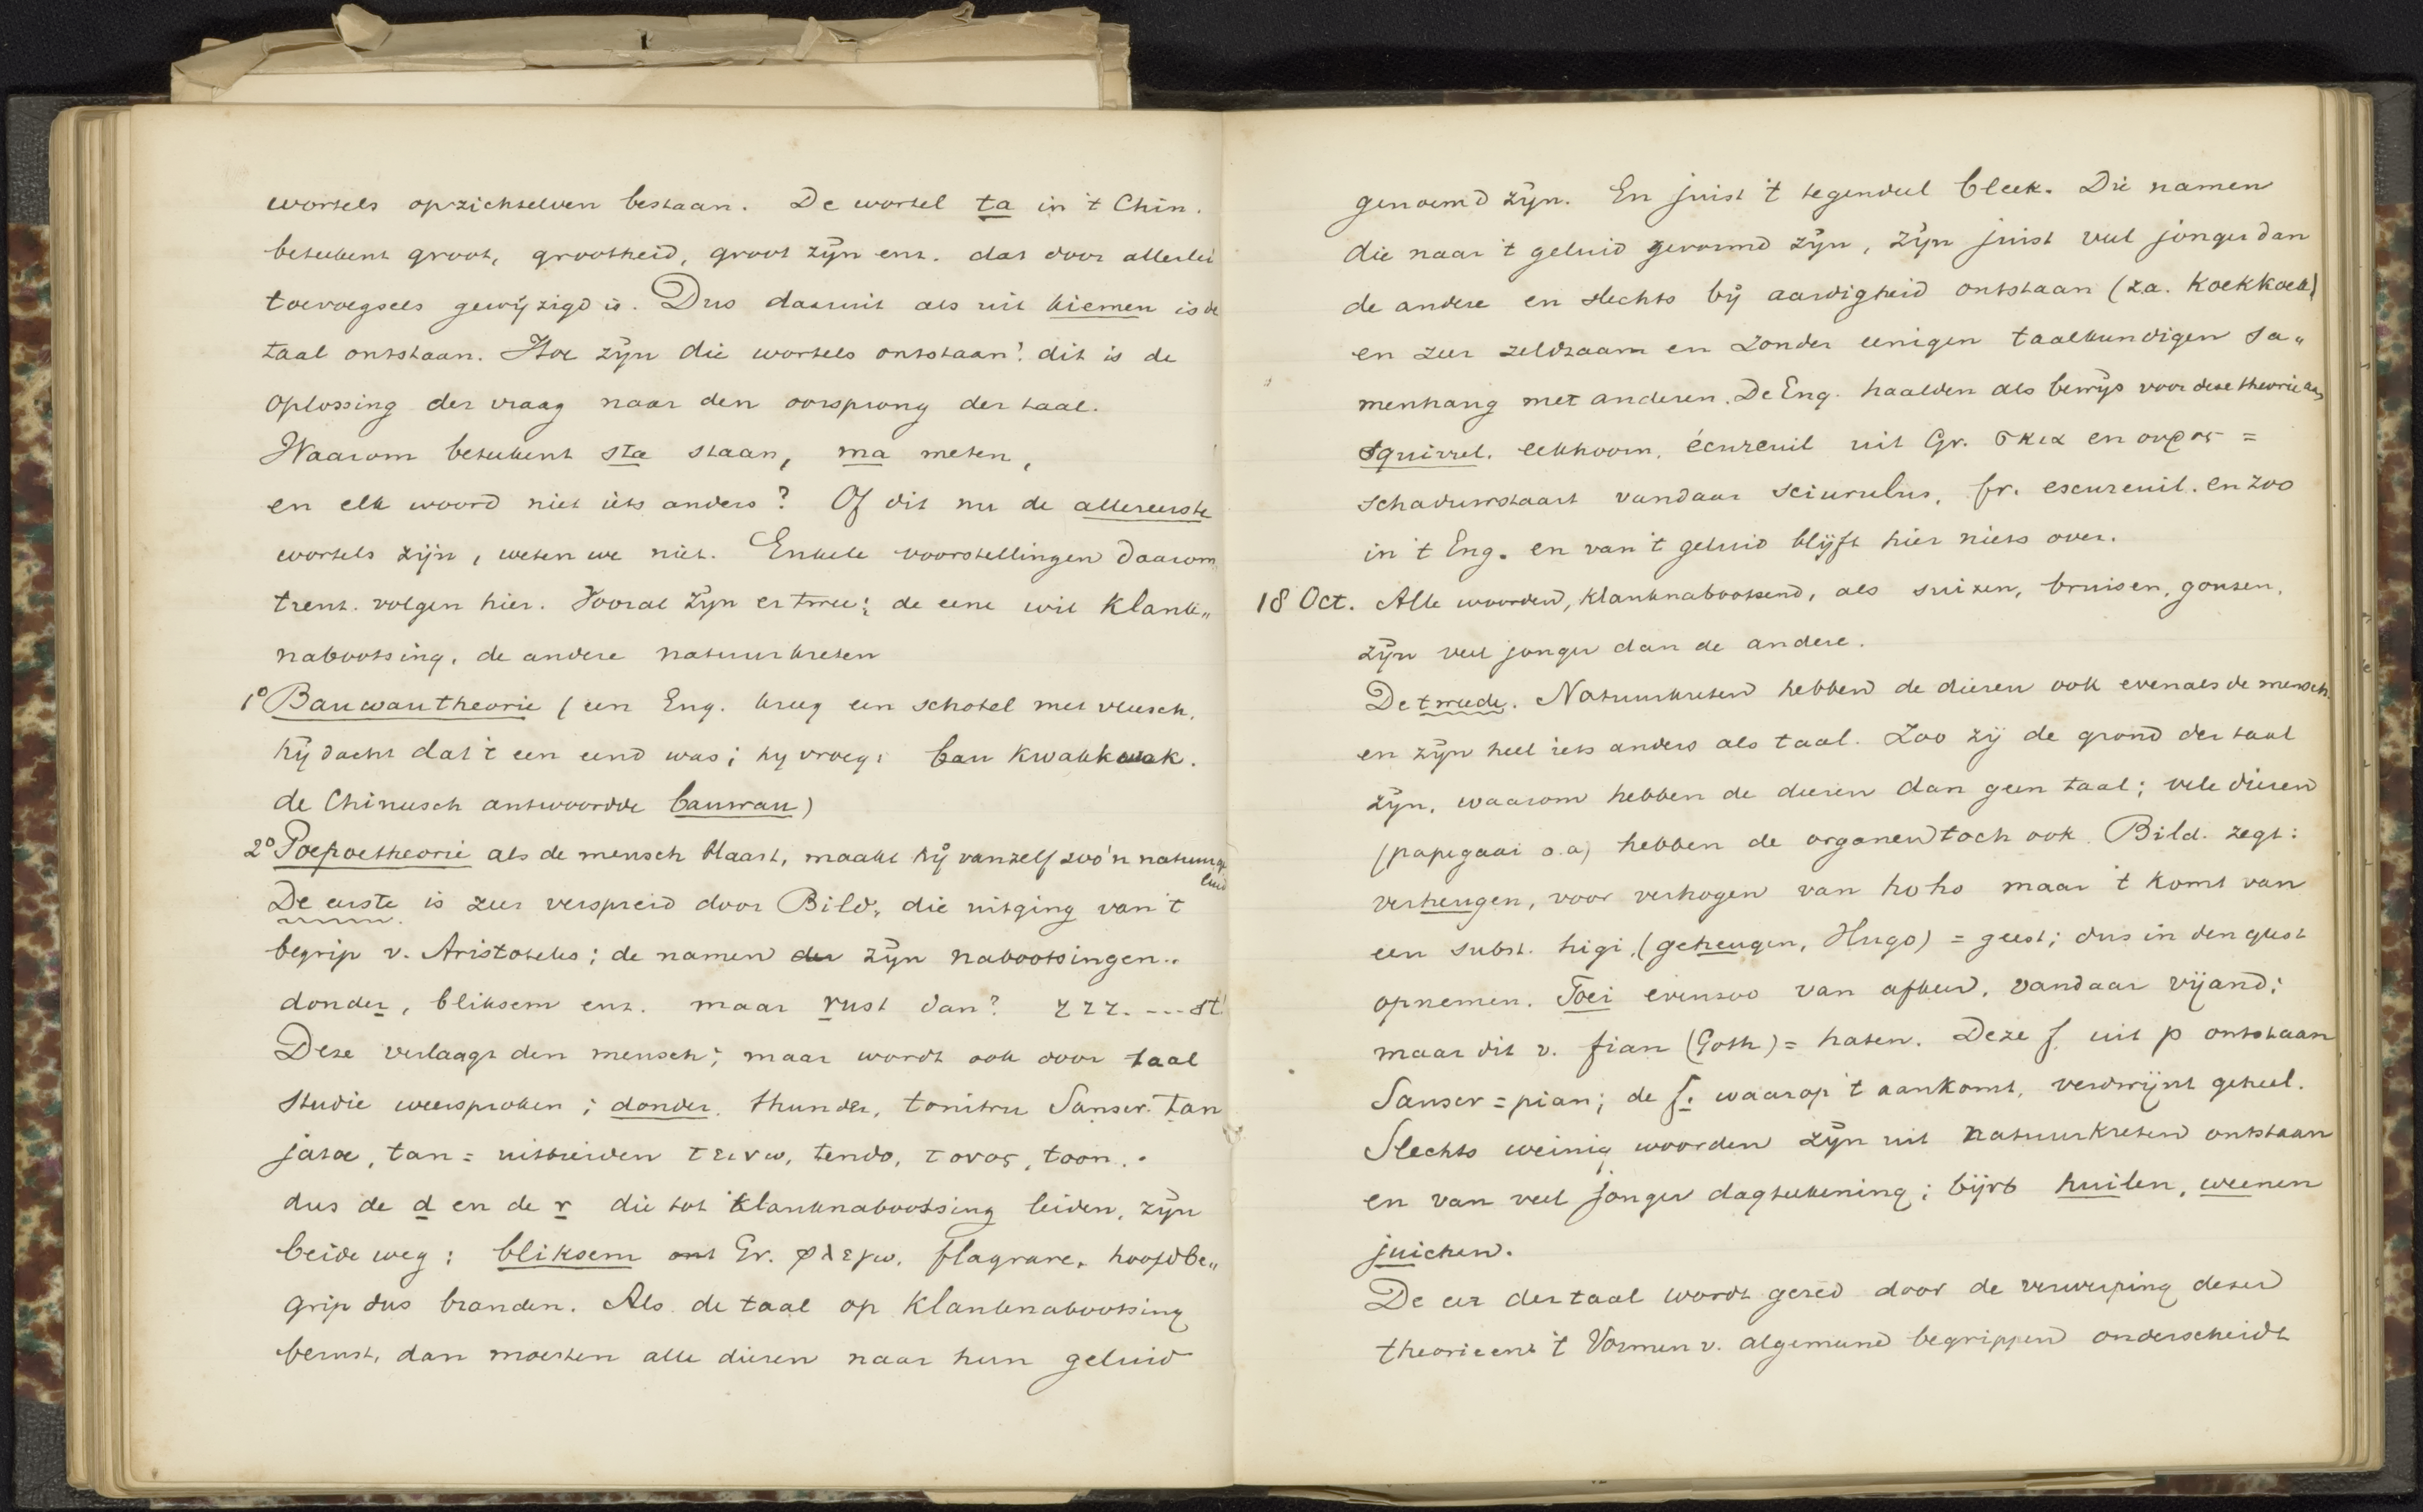 wortels opzichzelven bestaan. De wortel ta in 't Chin.
beteekent groot, grootheid, groot zijn enz. dat door allerlei
toevoegsels gewijzigd is. Dus daaruit als uit kiemen is de
taal ontstaan. Hoe zijn die wortels ontstaan? dit is de
oplossing der vraag naar den oorsprong der taal.
Waarom beteekent sta staan, ma meten,
en elk woord niet iets anders? Of dit nu de allereerste
wortels zijn, weten we niet. Enkele voorstellingen daarom„
trent volgen hier. Vooral zijn er twee; de eene wil klank„
nabootsing, de andere natuurkreten
1° Bauwautheorie (een Eng. kreeg een schotel met vleesch.
hij dacht dat 't een eend was; hij vroeg: bau kwakkwak.
de Chineesch antwoordde bauwau)
2° Poepoetheorie als de mensch blaast, maakt hij vanzelf zoo'n natuurge
luid
De eerste is zeer verspreid door Bild. die uitging van 't
begrip v. Aristoteles; de namen der zijn nabootsingen..
donder, bliksem enz. maar rust dan? rrr. --- st!
Deze verlaagt den mensch; maar wordt ook door taal
studie weersproken; donder. thunder, tonitru Sanscr. tan
jatoe, tan = uitbreiden τεινω, tendo, τονος, toon..
dus de d en de r die tot klanknabootsing leiden, zijn
beide weg; bliksem Gr. φλεγω, flagrare, hoofdbe„
grip dus branden. Als de taal op klanknabootsing
berust, dan moesten alle dieren naar hun geluid
genoemd zijn. En juist 't tegendeel bleek. Die namen
die naar 't geluid gevormd zijn, zijn juist veel jonger dan
de andere en slechts bij aardigheid ontstaan (z.a. koekkoek)
en zeer zeldzaam en zonder eenigen taalkundigen sa„
menhang met anderen. De Eng. haalden als bewijs voor deze theorie aan
squirrel. eekhoorn, écureuil uit Gr. σκια en ουρος =
schaduwstaart vandaar sciurulus, fr. escureuil. en zoo
in 't Eng. en van 't geluid blijft hier niets over.
18 Oct. Alle woorden, klanknabootsend, als suizen, bruisen, gonzen,
zijn veel jonger dan de andere.
De tweede. Natuurkreten hebben de dieren ook evenals de mensch.
en zijn heel iets anders als taal. Zoo zij de grond der taal
zijn, waarom hebben de dieren dan geen taal; vele dieren
(papegaai o.a) hebben de organen toch ook. Bild. zegt:
verheugen, voor verhogen van ho ho maar 't komt van
een subst. higi, (geheugen, Hugo) = geest; dus in den geest
opnemen. Foei evenzoo van afkeer, vandaar vijand;
maar dit v. fian (Goth) = haten. Deze f. uit p ontstaan
Sanscr = pian; de f. waarop 't aankomt, verdwijnt geheel.
Slechts weinig woorden zijn uit natuurkreten ontstaan
en van veel jonger dagteekening; bijvb huilen, weenen
juichen.
De eer der taal wordt gered door de verwerping dezer
theorieen 't Vormen v. algemeene begrippen onderscheidt